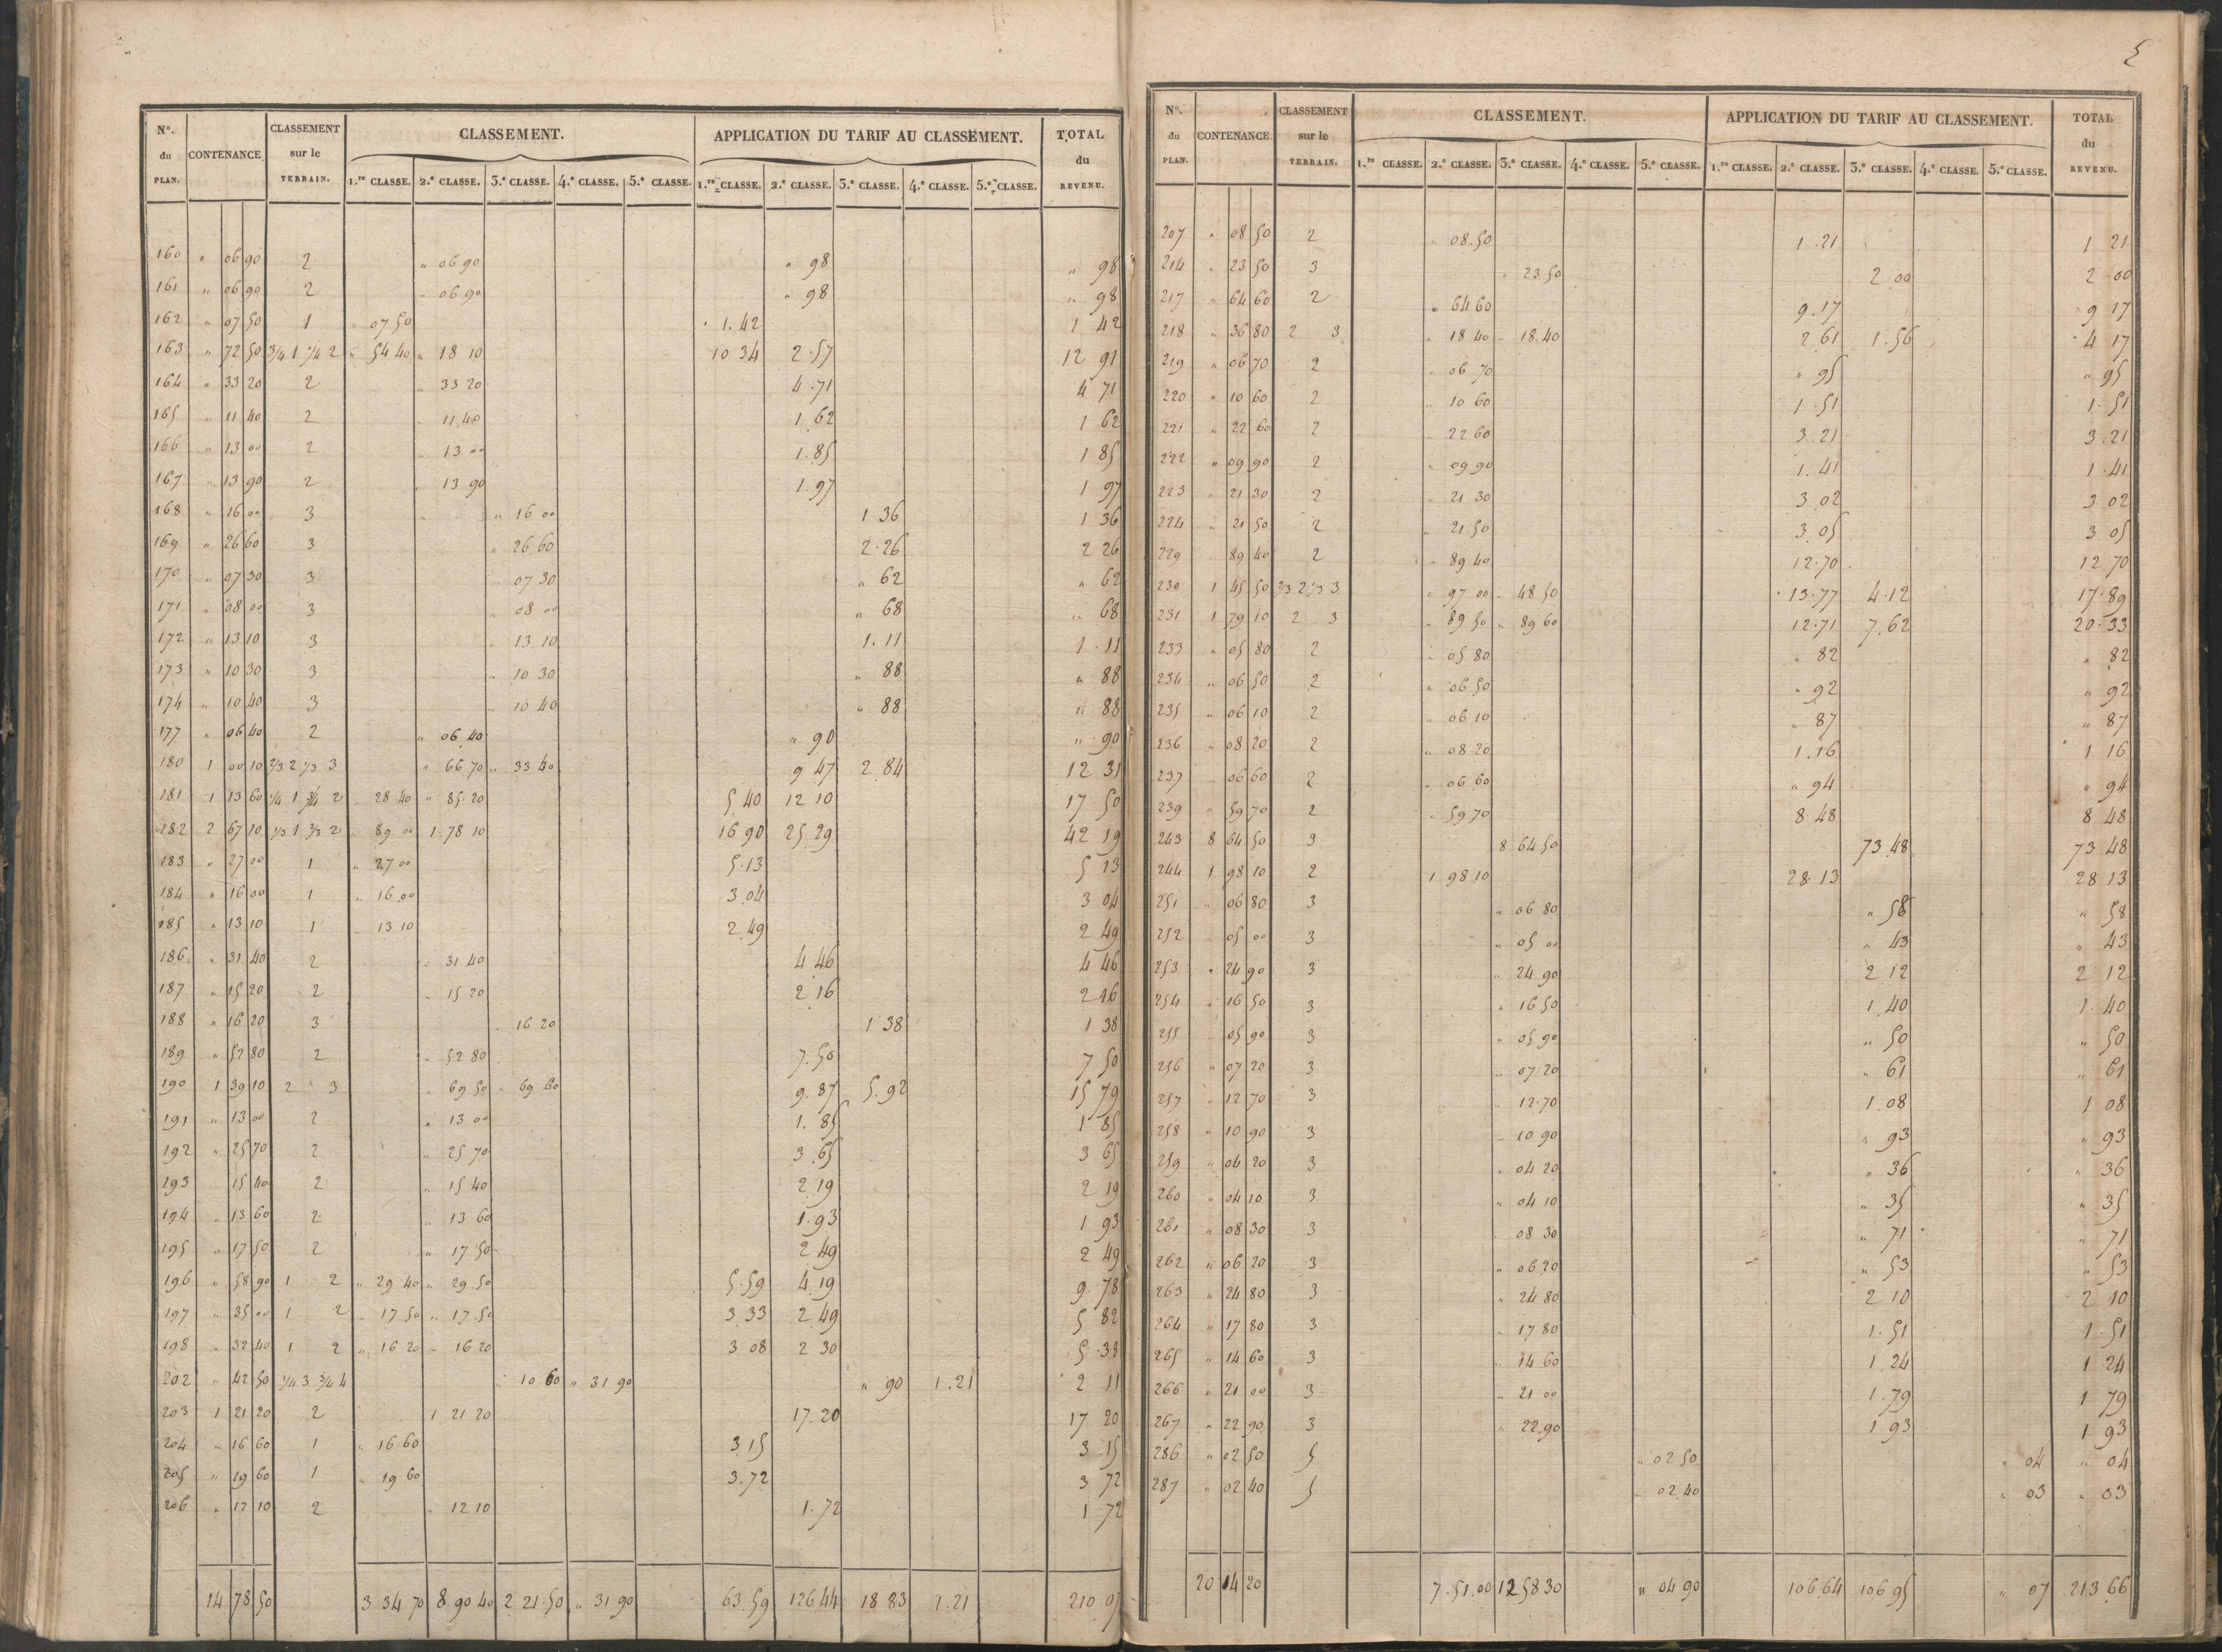 N°. du PLAN. CONTENANCE CLASSEMENT sur le TERRAIN. CLASSEMENT. APPLICATION DU TARIF AU CLASSEMENT. TOTAL du REVENU.
1.re CLASSE. 2.e CLASSE. 3.e CLASSE. 4.e CLASSE. 5.e CLASSE. 1.re CLASSE. 2.e CLASSE. 3.e CLASSE. 4.e CLASSE. 5.e CLASSE.
160 " 06 90 2 " 06 90 " 98 " 98
161 " 06 90 2 " 06 90 " 98 " 98
162 " 07 50 1 " 07 50 1.42 1 42
163 " 72 50 3/4 1 1/4 2 " 54 40 " 18 10 10 34 2.57 12 91
164 " 33 20 2 " 33 20 4.71 4 71
165 " 11 40 2 " 11.40 1.62 1 62
166 " 13 00 2 " 13 00 1.85 1 85
167 " 13 90 2 " 13 90 1.97 1 97
168 " 16 00 3 " " 16 00 1 36 1 36
169 " 26 60 3 " 26.60 2.26 2 26
170 " 07 30 3 " 07 30 " 62 " 62
171 " 08 00 3 " 08 00 " 68 " 68
172 " 13 10 3 " 13 10 1.11 1.11
173 " 10 30 3 " 10 30 " 88 " 88
174 " 10 40 3 " 10 40 " 88 " 88
177 " 06 40 2 " 06.40 " 90 " 90
180 1 00 10 2/3 2 1/3 3 " 66 70 " 33 40 9 47 2.84 12 31
181 1 13 60 1/4 1 3/4 2 " 28 40 " 85.20 5.40 12 10 17 50
182 2 67 10 1/3 1 2/3 2 " 89 00 1.78 10 16 90 25 29 42 19
183 " 27 00 1 " 27 00 5.13 5 13
184 " 16 00 1 " 16.00 3.04 3 04
185 " 13 10 1 " 13 10 2.49 2 49
186 " 31 40 2 " 31 40 4 46 4 46
187 " 15 20 2 " 15 20 2 16 2 16
188 " 16 20 3 " 16 20 1 38 1 38
189 " 52 80 2 " 52 80 7.50 7 50
190 1 39 10 2 3 " 69 50 " 69 60 9.87 5.92 15 79
191 " 13 00 2 " 13 00 1.85 1 85
192 " 25 70 2 " 25 70 3.65 3 65
193 15 40 2 " 15 40 2.19 2 19
194 " 13 60 2 " 13 60 1.93 1 93
195 " 17 50 2 " 17 50 2 49 2 49
196 " 58 90 1 2 " 29 40 " 29.50 5.59 4.19 9.78
197 " 35 00 1 2 " 17.50 " 17.50 3.33 2.49 5 82
198 " 32 40 1 2 " 16 20 " 16 20 3 08 2 30 5.38
202 " 42 50 1/4 3 3/4 4 " 10 60 " 31 90 " 90 1.21 2 11
203 1 21 20 2 1 21 20 17.20 17 20
204 " 16 60 1 " 16.60 3.15 3 15
205 " 19 60 1 " 19 60 3.72 3 72
206 " 12 10 2 " 12 10 1.72 1 72
14 78 50 3.34 70 8.90 40 2 21.50 " 31 90 63.59 126 44 18 83 1.21 210 07
5
N°. du PLAN. CONTENANCE CLASSEMENT sur le TERRAIN. CLASSEMENT. APPLICATION DU TARIF AU CLASSEMENT. TOTAL du REVENU.
1.re CLASSE. 2.e CLASSE. 3.e CLASSE. 4.e CLASSE. 5.e CLASSE. 1.re CLASSE. 2.e CLASSE. 3.e CLASSE. 4.e CLASSE. 5.e CLASSE.
207 " 08 50 2 " 08.50 1.21 1 21
214 " 23 50 3 " 23.50 2 00 2 00
217 " 64 60 2 " 64 60 9.17 9 17
218 " 36 80 2 3 " 18 40 " 18.40 2 61 1.56 4 17
219 " 06 70 2 " 06 70 " 95 " 95
220 " 10 60 2 " 10 60 1.51 1.51
221 " 22 60 2 " 22 60 3.21 3.21
222 " 09 90 2 " 09 90 1.41 1.41
223 " 21 30 2 " 21 30 3.02 3 02
224 " 21 50 2 " 21.50 3.05 3 05
229 89 40 2 " 89 40 12.70 12 70
230 1 45 50 2/3 2 1/3 3 " 97 00 " 48 50 13.77 4.12 17.89
231 1 79 10 2 3 " 89 50 " 89 60 12.71 7.62 20.33
233 " 05 80 2 " 05 80 " 82 " 82
234 " 06 50 2 " 06.50 " 92 " 92
235 " 06 10 2 " 06 10 " 87 " 87
236 " 08 20 2 " 08.20 1.16 1 16
237 " 06 60 2 " 06 60 " 94 " 94
239 " 59 70 2 " 59 70 8.48 8 48
243 8 64 50 3 8 64 50 73.48 73 48
244 1 98 10 2 1 98 10 28.13 28 13
251 " 06 80 3 " 06 80 " 58 " 58
252 05 00 3 " 05 00 " 43 " 43
253 " 24 90 3 " 24 90 2.12 2 12
254 " 16 50 3 " 16 50 1.40 1.40
255 05 90 3 " 05 90 " 50 " 50
256 " 07 20 3 " 07 20 " 61 " 61
257 " 12 70 3 " 12.70 1.08 1 08
258 " 10 90 3 " 10 90 " 93 " 93
259 " 04 20 3 " 04 20 " 36 " 36
260 " 04 10 3 " 04 10 " 35 " 35
261 " 08 30 3 " 08 30 " 71 " 71
262 " 06 20 3 " 06 20 " 53 " 53
263 " 24 80 3 " 24 80 2 10 2 10
264 " 17 80 3 " 17 80 1.51 1.51
265 " 14 60 3 " 14 60 1.24 1 24
266 " 21 00 3 " 21 00 1.79 1 79
267 " 22 90 3 " 22.90 1 93 1 93
286 " 02 50 5 " 02 50 " 04 " 04
287 " 02 40 5 " 02.40 " 03 " 03
20 14 20 7.51.00 12 58 30 " 04 90 106 64 106 95 " 07 213.66